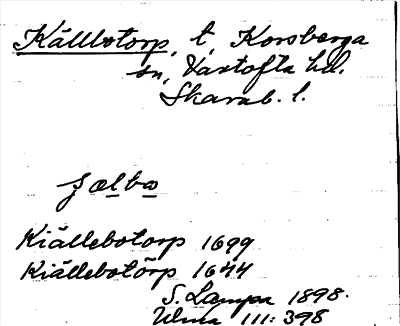 Källbotorp, t, Korsberga
sn, Vartofta hd.
Skarab. l.
jælbo
Kiällebotorp 1699
Kiällebotörp 1644
S. Lampa 1898.
Ulma 111:398